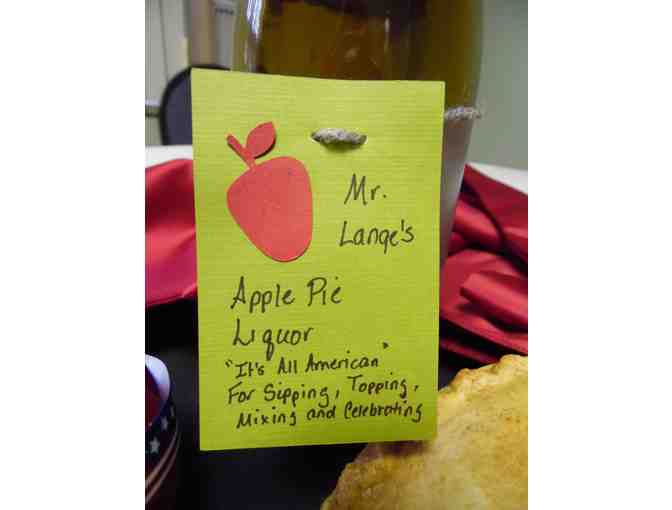 Mr.
Lange's
Apple Pie
Liquor
"It's All American"
For Sipping, Topping,
Mixing and Celebrating